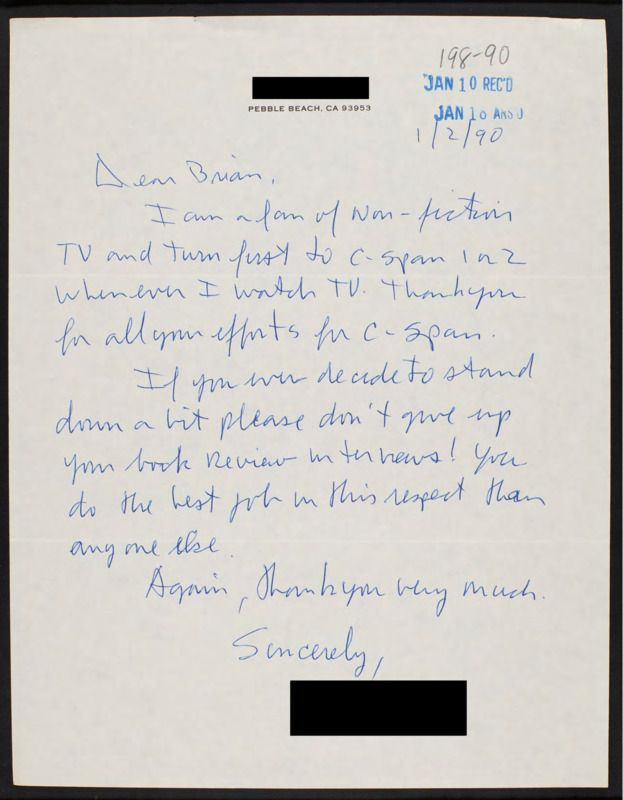 198-90
JAN 10 REC'D
PEBBLE BEACH, CA 93953
JAN 18 ANS'D
1/2/90
Dear Brian,
I am a fan of non-fiction
TV and turn first to C-Span 1 or 2
whenever I watch TV. Thank you
for all your efforts for C-Span.
If you ever decide to stand
down a bit please don't give up
your book review interviews! You
do the best job in this respect than
anyone else.
Again, thank you very much.
Sincerely,